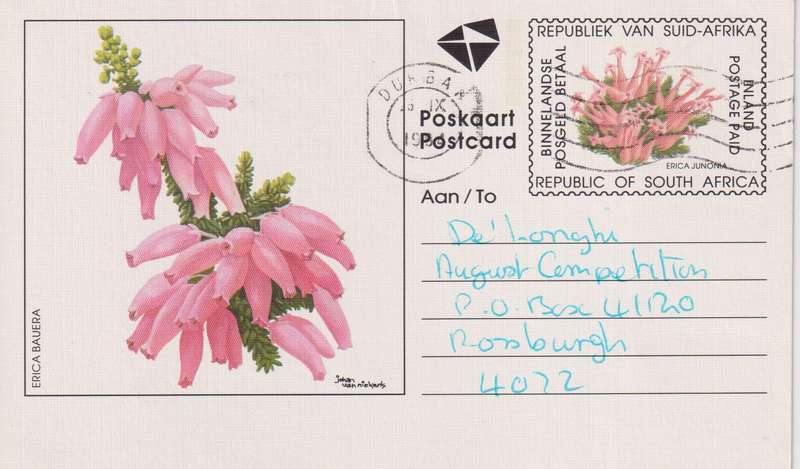 ERICA BAUERA
johan van niekerk
DURBAN
IX
Poskaart
Postcard
REPUBLIEK VAN SUID-AFRIKA
BINNELANDSE POSGELD BETAAL
INLAND POSTAGE PAID
ERICA JUNONIA
REPUBLIC OF SOUTH AFRICA
Aan / To
De'Longhi
August Competition
P.O. Box 41120
Rossburgh
4072